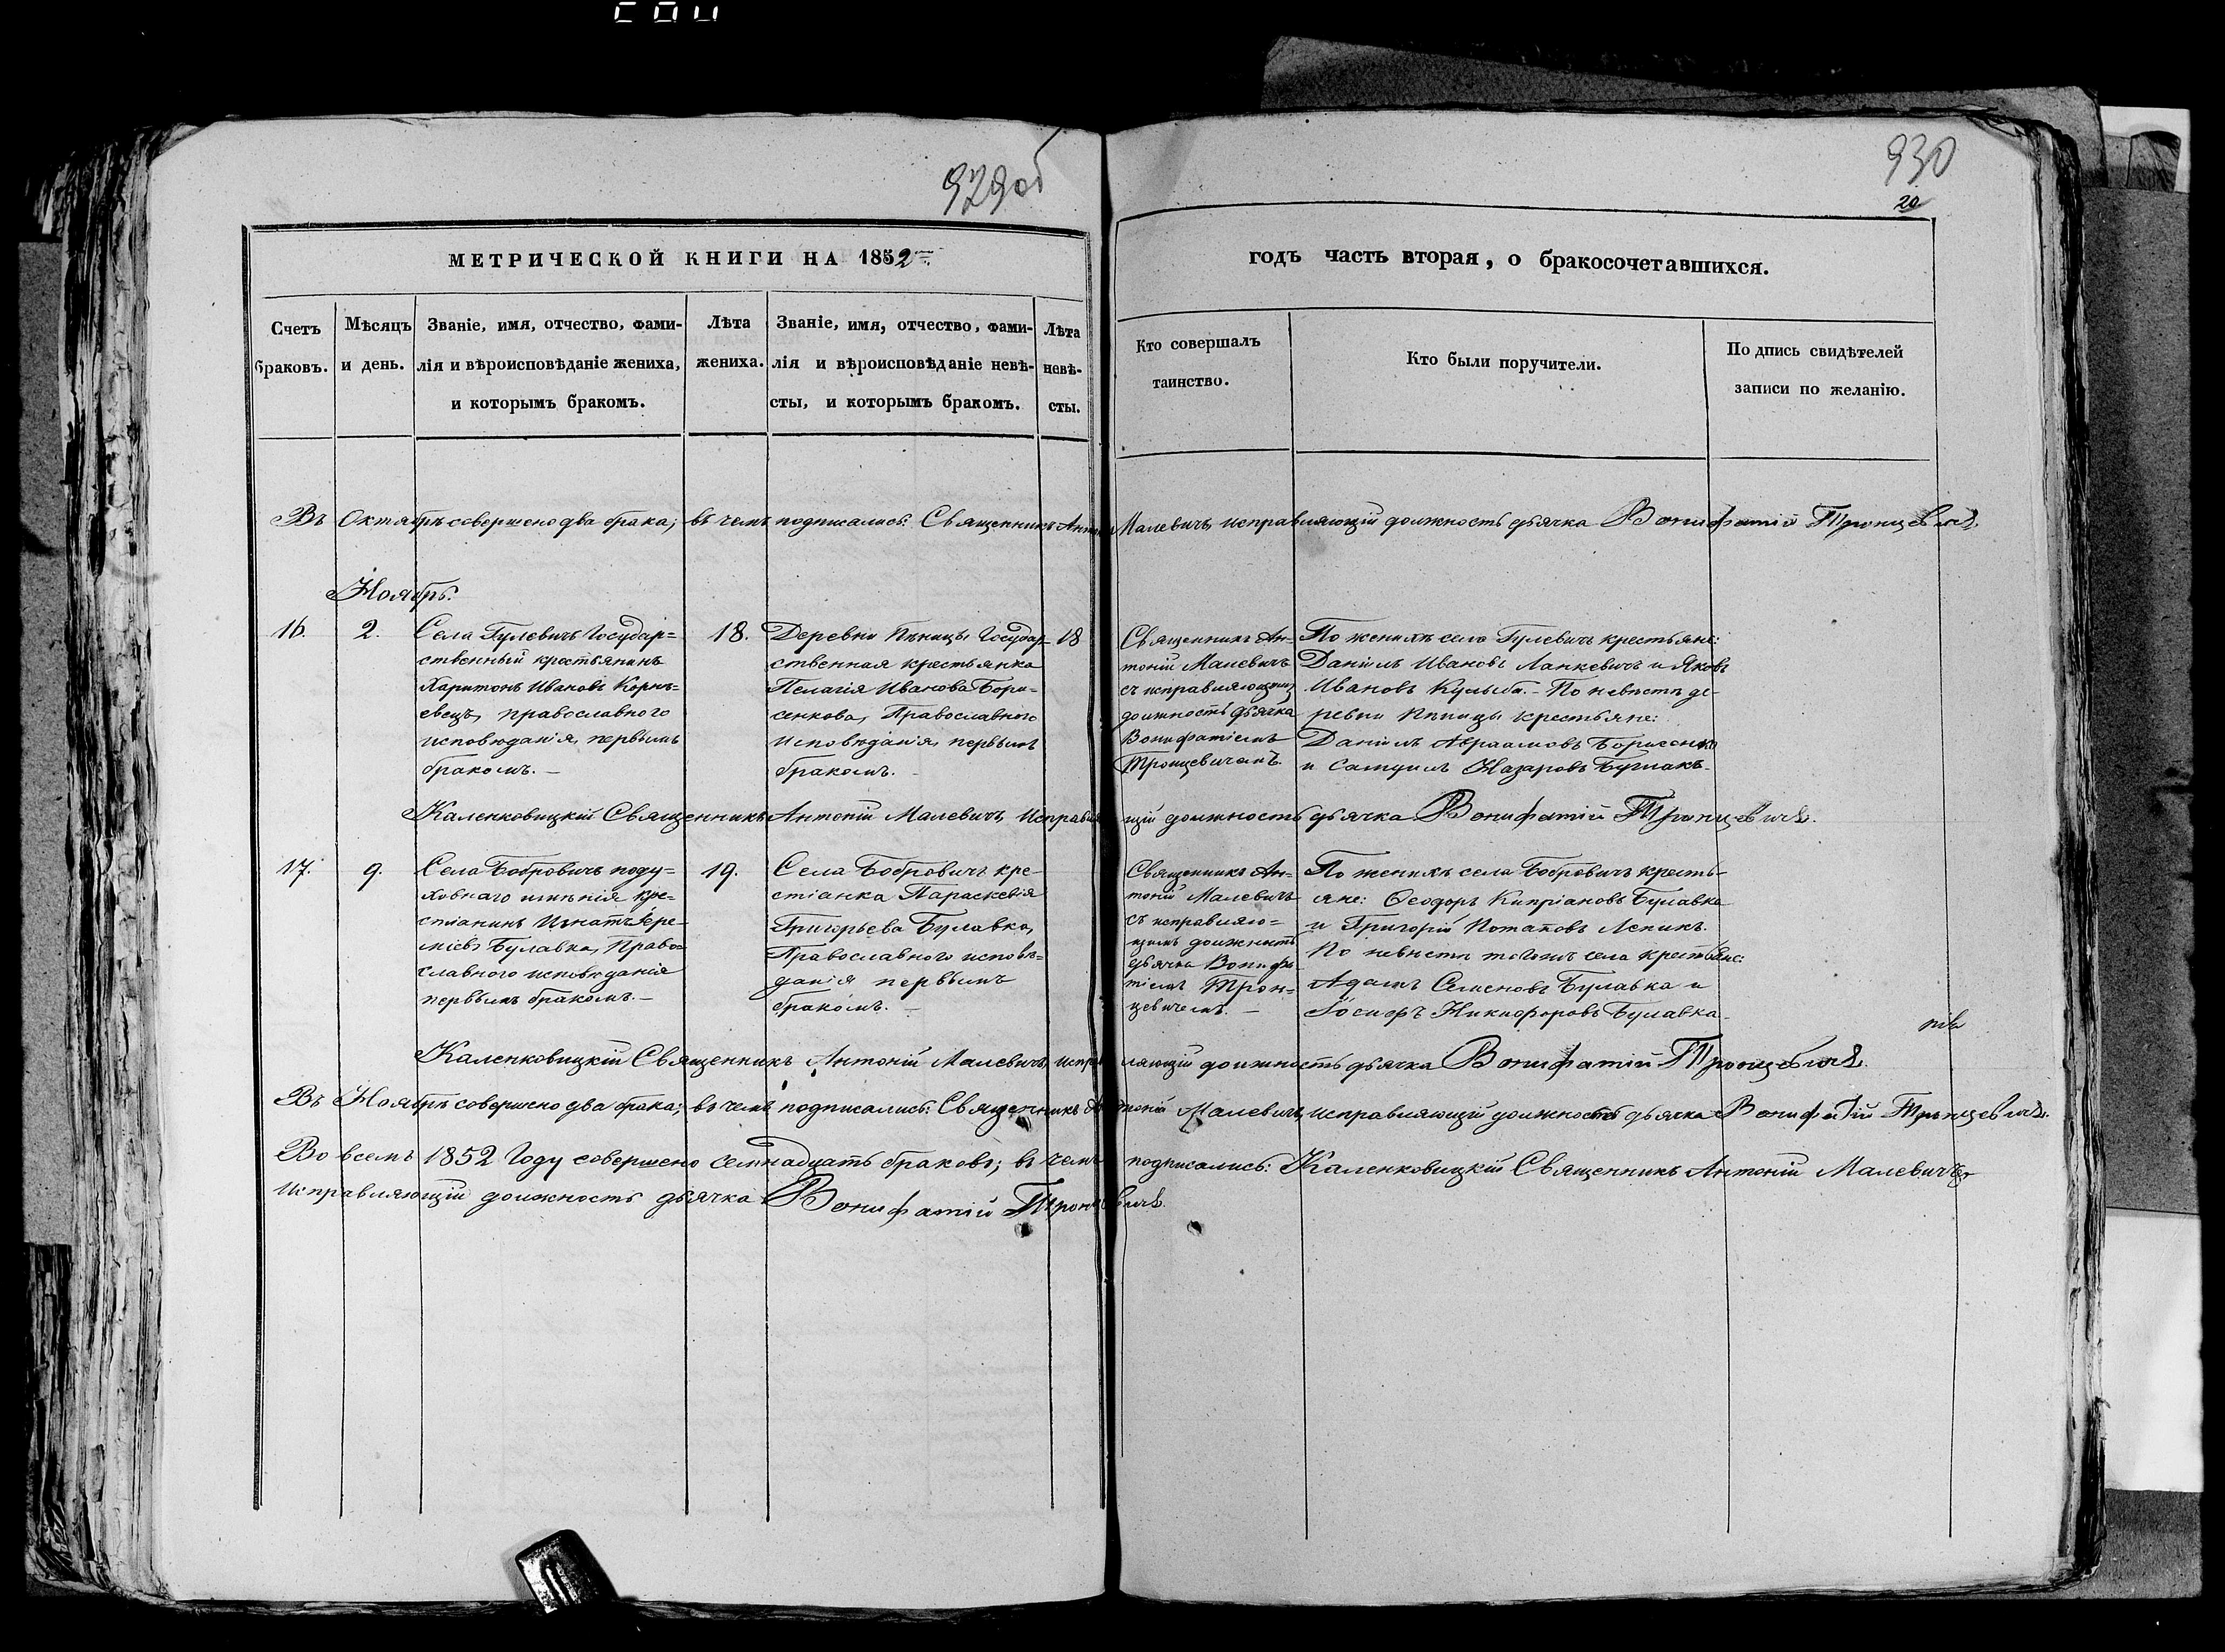 929об
МЕТРИЧЕСКОЙ КНИГИ НА 1852
Счетъ браковъ.
Мѣсяцъ и день.
Званіе, имя, отчество, фами-
лія и вѣроисповѣданіе жениха,
и которымъ бракомъ.
Лѣта
жениха.
Званіе, имя, отчество, фами-
лія и вѣроисповѣданіе невѣ-
сты, и которымъ бракомъ.
Лѣта
невѣ-
сты.
930
20
годъ часть вторая, о бракосочетавшихся.
Кто совершалъ
таинство.
Кто были поручители.
Подпись свидѣтелей
записи по желанію.
Въ Октябрѣ совершено два брака; въ чемъ подписались: Священникъ Антоній Малевичъ, исправляющій должность дьячка Вонифатій Тронцевичъ.
Ноябрь.
16.
2.
Села Гулевичъ Государ=
ственный крестьянинъ
Харитонъ Ивановъ Корнѣ=
евецъ, православнаго
исповѣданія, первымъ
бракомъ.—
18.
Деревни Пѣницы Государ-
ственная крестьянка
Пелагія Иванова Бори-
сенкова, Православнаго
исповѣданія, первымъ
бракомъ.
18
Священникъ Ан-
тоній Малевичъ
съ исправляющимъ
должность дьячка
Вонифатіемъ
Тронцевичемъ.
По женихѣ села Гулевичъ крестьяне:
Даніилъ Ивановъ Лапкевичъ и Яковъ
Ивановъ Кулыба.- По невѣстѣ де-
ревни Пѣницы крестьяне:
Даніилъ Авраамовъ Борисенко
и Самуилъ Назаровъ Бурлакъ.
Каленковицкій Священникъ Антоній Малевичъ, Исправляющій должность дьячка Вонифатій Тронцевичъ.
17.
9.
Села Бобровичъ поду=
ховнаго имѣнія кре=
стіанинъ Игнатъ Іере-
міевъ Булавка, Право=
славнаго исповѣданія
первымъ бракомъ.—
19.
Села Бобровичъ кре-
стіанка Параскевія
Григорьева Булавка,
Православнаго исповѣ=
данія первымъ
бракомъ.
Священникъ Ан=
тоній Малевичъ
съ исправляю=
щимъ должность
дьячка Вонифа-
тіемъ Трон=
цевичемъ.—
По женихѣ села Бобровичъ кресть-
яне: Ѳеодоръ Кипріановъ Булавка
и Григорій Потаповъ Лепикъ.
По невѣстѣ тогожъ села крестьяне:
Адамъ Семеновъ Булавка и
Іосифъ Никифоровъ Булавка.
Каленковицкій Священникъ Антоній Малевичъ, исправляющій должность дьячка Вонифатій Тронцевичъ.
Въ Ноябрѣ совершено два брака; въ чемъ подписались: Священникъ Антоній Малевичъ, исправляющій должность дьячка Вонифатій Тронцевичъ.
Во всемъ 1852 Году совершено семнадцать браковъ; въ чемъ подписались: Каленковицкій Священникъ Антоній Малевичъ,
Исправляющій должность дьячка Вонифатій Тронцевичъ.